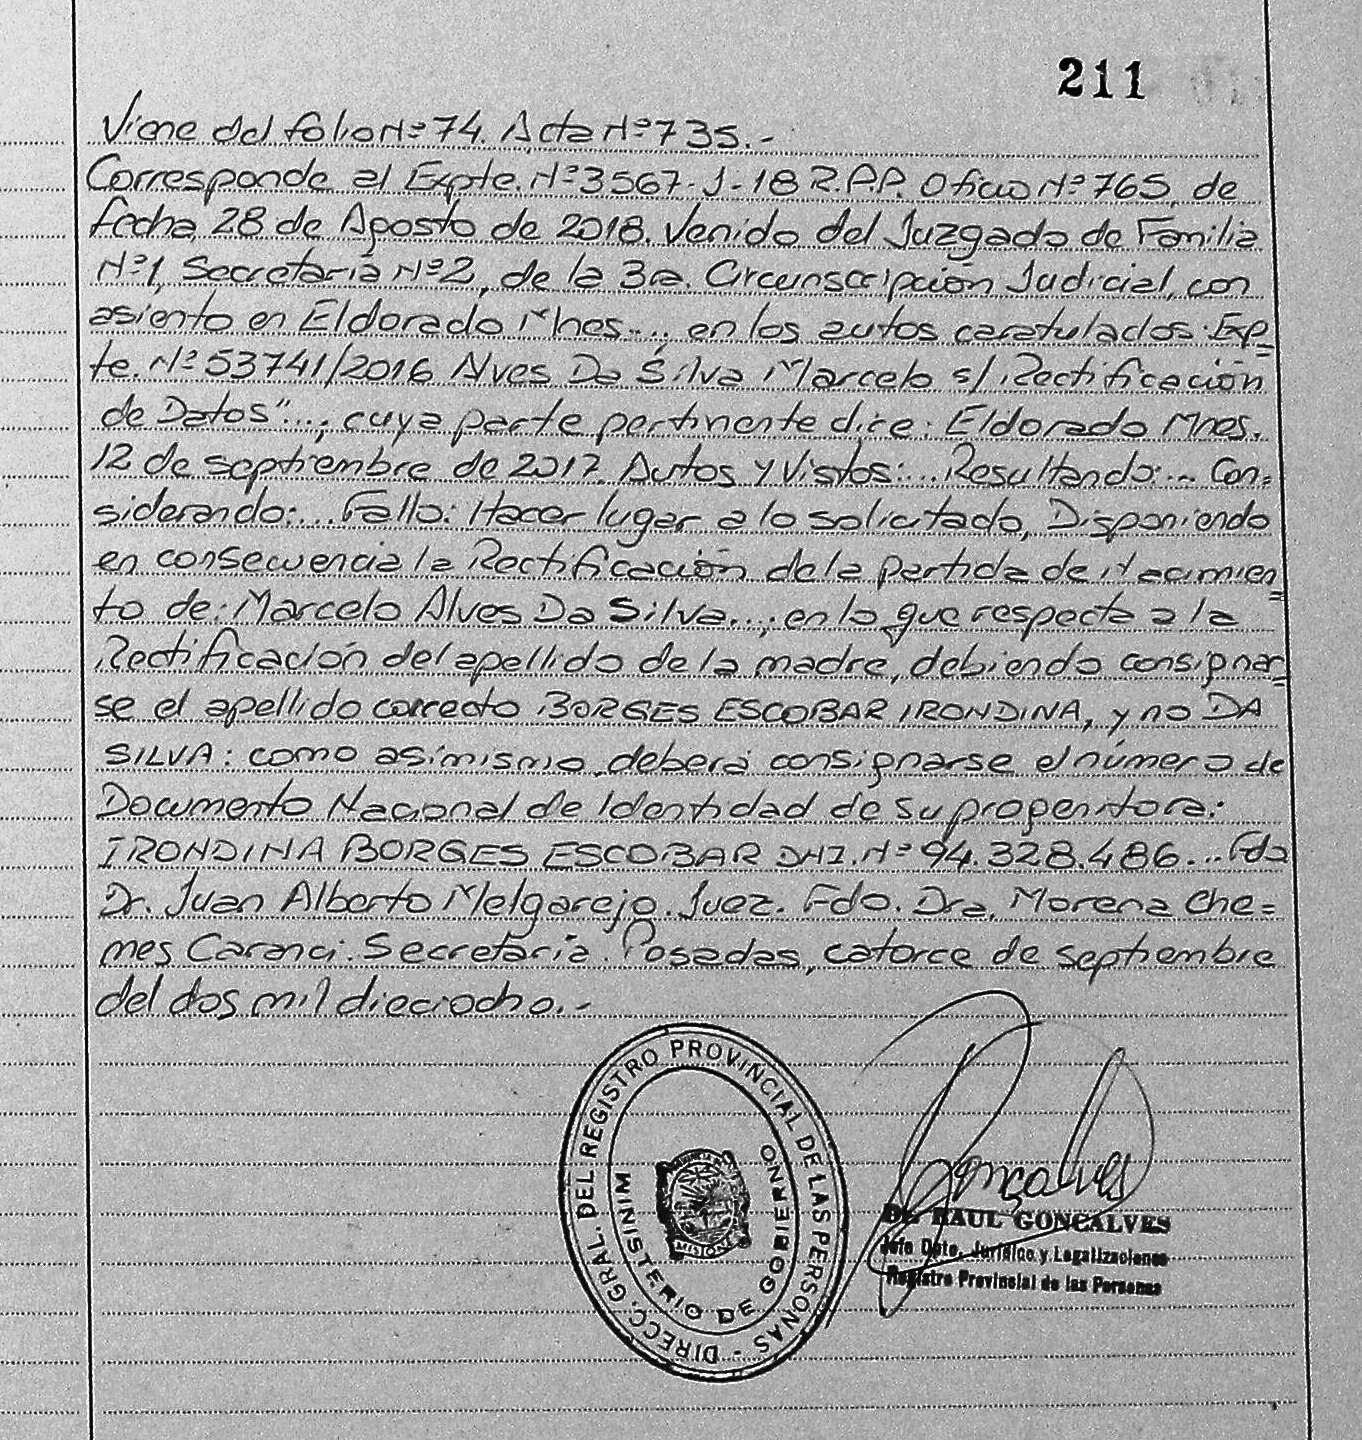 211
Viene del folio Nº 74. Acta Nº 735.-
Corresponde al Expte. Nº 3567-J-18 R.P.P. Oficio Nº 765, de
fecha, 28 de Agosto de 2018. Venido del Juzgado de Familia
Nº1, Secretaria Nº2, de la 3ra. Circunscripción Judicial, con
asiento en Eldorado Mnes...., en los autos caratulados: Exp=
te. Nº 53741/2016 Alves Da Silva Marcelo s/ Rectificación
de Datos"...; cuya parte pertinente dice: Eldorado Mnes.
12 de septiembre de 2017. Autos y Vistos:... Resultando:... Con=
siderando:... Fallo: Hacer lugar a lo solicitado, Disponiendo
en consecuencia la Rectificación de la partida de Nacimien=
to de: Marcelo Alves Da Silva...; en lo que respecta a la
Rectificación del apellido de la madre, debiendo consignar=
se el apellido correcto BORGES ESCOBAR IRONDINA, y no DA
SILVA: como asímismo, deberá consignarse el número de
Documento Nacional de Identidad de su progenitora:
IRONDINA BORGES ESCOBAR DNI. Nº 94.328.486... Fdo
Dr. Juan Alberto Melgarejo. Juez. Fdo. Dra. Morena Che=
mes Caranci. Secretaria. Posadas, catorce de septiembre
del dos mil dieciocho.-
DIRECC. GRAL. DEL REGISTRO PROVINCIAL DE LAS PERSONAS -
MINISTERIO DE GOBIERNO
MISIONES
Gonçalves
Dr. RAUL GONCALVES
Jefe Dpto. Jurídico y Legalizaciones
Registro Provincial de las Personas